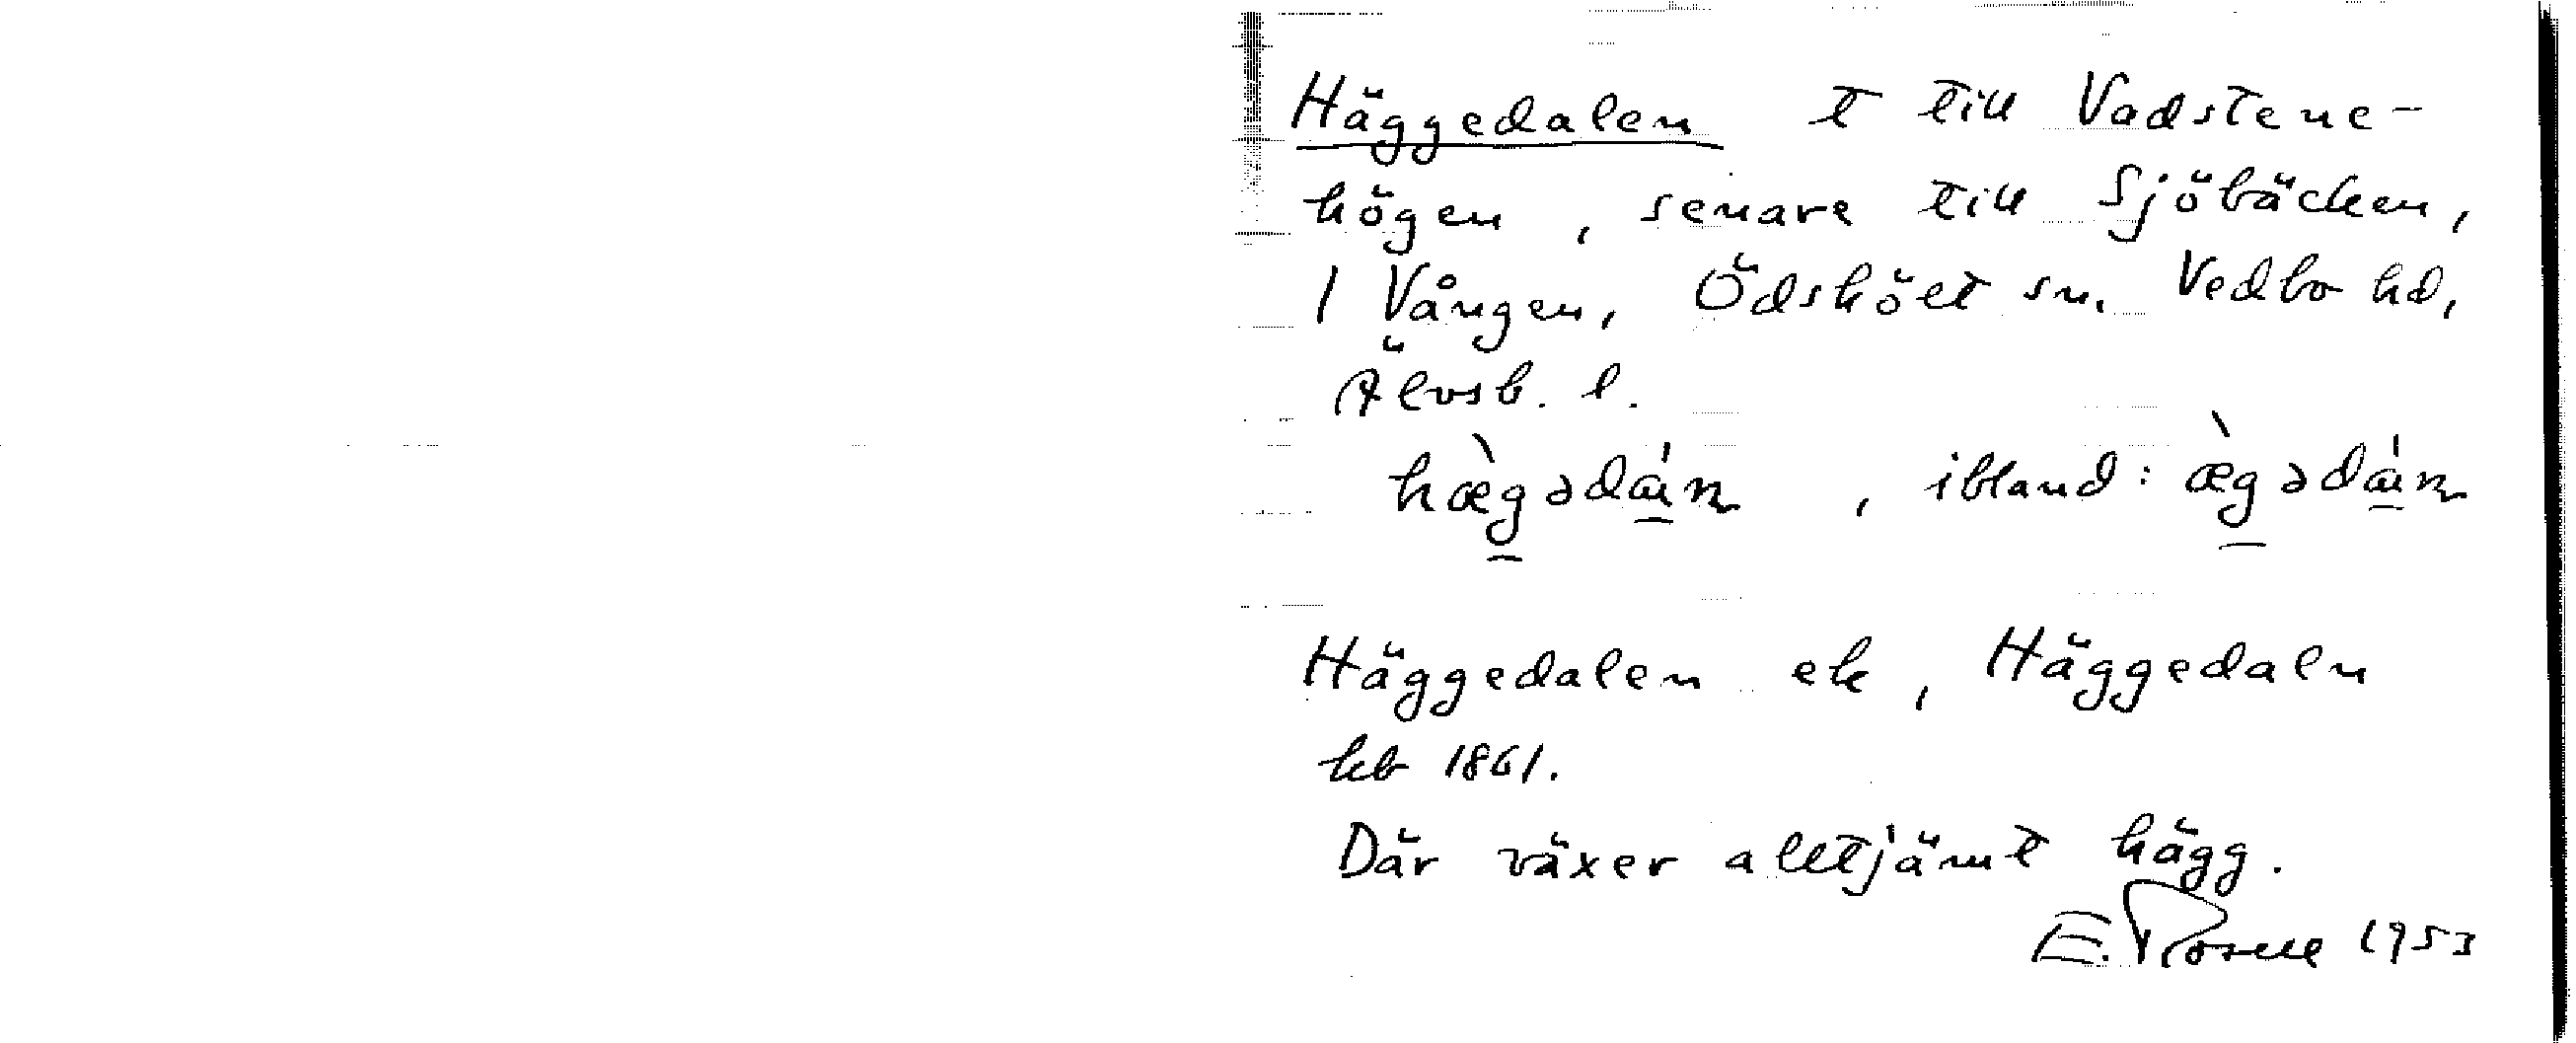 Häggedalen t till Vadstene-
högen, senare till Sjöbäcken,
1 Vången, Ödsköet sn. Vedbo hd,
Älvsb. l.
hæ̀g̱əda̱̍n, ibland: æ̀g̱əda̱̍n
Häggedalen ek, Häggedaln
kb 1861.
Där växer alltjämt hägg.
E. Rosell 1953